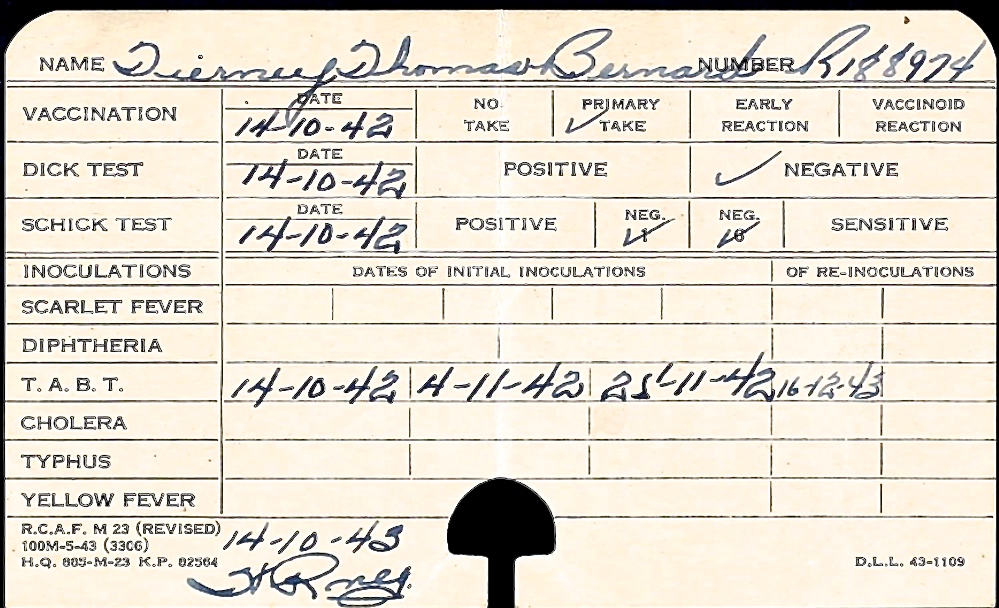 NAME Tierney Thomas Bernard NUMBER R188974
VACCINATION DATE 14-10-42 NO TAKE ✓ PRIMARY TAKE EARLY REACTION VACCINOID REACTION
DICK TEST DATE 14-10-42 POSITIVE ✓ NEGATIVE
SCHICK TEST DATE 14-10-42 POSITIVE NEG. ✓ NEG. ✓ SENSITIVE
INOCULATIONS DATES OF INITIAL INOCULATIONS OF RE-INOCULATIONS
SCARLET FEVER
DIPHTHERIA
T. A. B. T. 14-10-42 4-11-42 25-11-42 16-12-43
CHOLERA
TYPHUS
YELLOW FEVER
R.C.A.F. M 23 (REVISED) 14-10-43
100M-5-43 (3306)
H.Q. 885-M-23 K.P. 82564 D.L.L. 43-1109